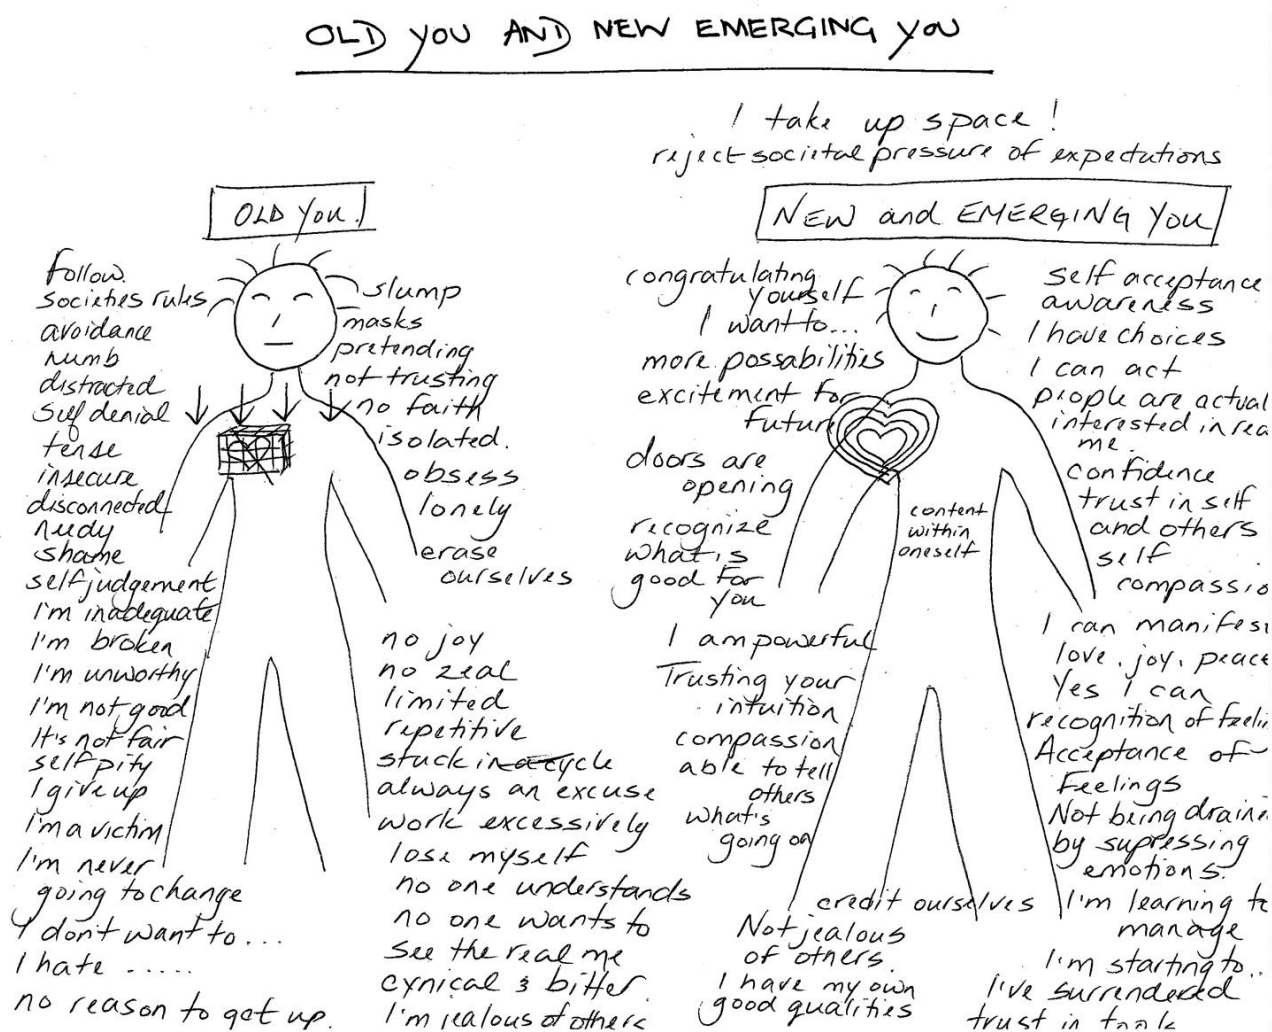 OLD YOU AND NEW EMERGING YOU
I take up space!
reject societal pressure of expectations
OLD YOU.
NEW and EMERGING YOU
follow
societies rules
avoidance
numb
distracted
self denial
tense
insecure
disconnected
needy
shame
self judgement
I'm inadequate
I'm broken
I'm unworthy
I'm not good
It's not fair
self pity
I give up
I'm a victim
I'm never
going to change
I don't want to....
I hate .....
no reason to get up.
slump
masks
pretending
not trusting
no faith
isolated.
obsess
lonely
erase
ourselves
no joy
no zeal
limited
repetitive
stuck in a cycle
always an excuse
work excessively
lose myself
no one understands
no one wants to
see the real me
cynical & bitter.
I'm jealous of others
congratulating
yourself
I want to...
more possabilities
excitement for
future
doors are
opening
recognize
what is
good for
you
I am powerful
Trusting your
intuition
compassion
able to tell
others
what's
going on
content
within
oneself
credit ourselves
Not jealous
of others.
I have my own
good qualities
self acceptance
awareness
I have choices
I can act
people are actual
interested in rea
me.
confidence
trust in self
and others
self
compassio
I can manifest
love, joy, peace
Yes I can
recognition of feeli
Acceptance of
Feelings
Not being draini
by supressing
emotions.
I'm learning to
manage
I'm starting to..
I've surrendered
trust in